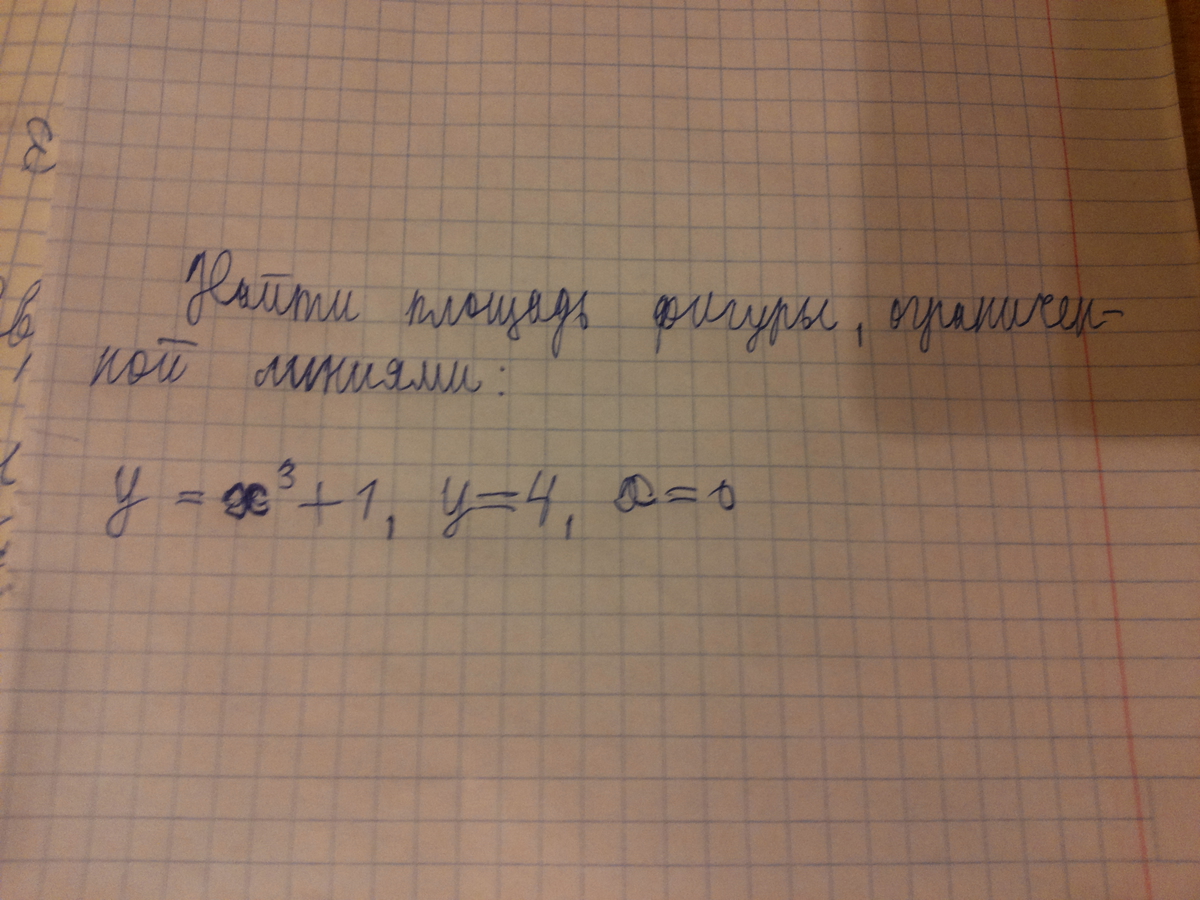 Найти площадь фигуры, ограничен-
ной линиями:
y = x³ + 1, y = 4, x = 0